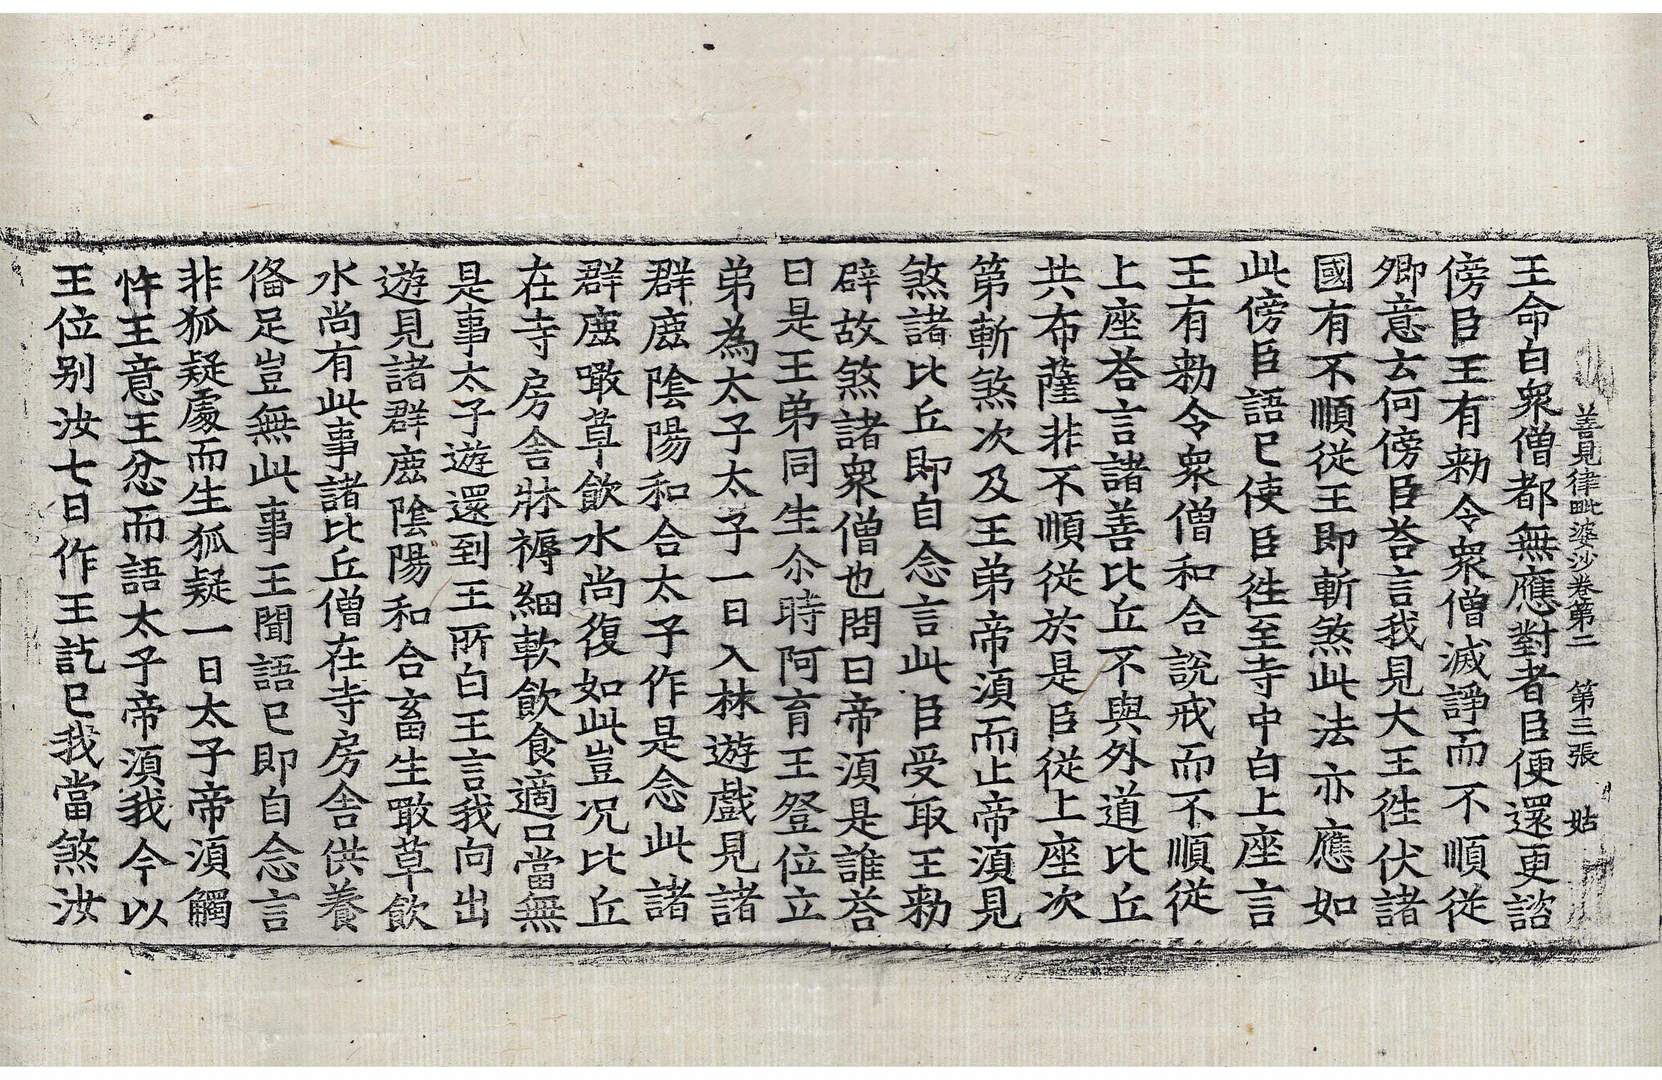 善見律毗婆沙卷第二 第三張 姑
王命白衆僧都無應對者臣便還更諮
傍臣王有勑令衆僧滅諍而不順從
卿意云何傍臣荅言我見大王徃伏諸
國有不順從王即斬煞此法亦應如
此傍臣語已使臣徃至寺中白上座言
王有勑令衆僧和合說戒而不順從
上座荅言諸善比丘不與外道比丘
共布薩非不順從於是臣從上座次
第斬煞次及王弟帝湏而止帝湏見
煞諸比丘即自念言此臣受取王勑
辟故煞諸衆僧也問曰帝湏是誰荅
曰是王弟同生尒時阿育王登位立
弟為太子太子一日入林遊戲見諸
群鹿隂陽和合太子作是念此諸
群鹿噉草飲水尚復如此豈况比丘
在寺房舍牀褥細軟飲食適口當無
是事太子遊還到王所白王言我向出
遊見諸群鹿隂陽和合畜生噉草飲
水尚有此事諸比丘僧在寺房舍供養
俻足豈無此事王聞語已即自念言
非狐疑處而生狐疑一日太子帝湏觸
忤王意王忿而語太子帝湏我今以
王位別汝七日作王訖已我當煞汝